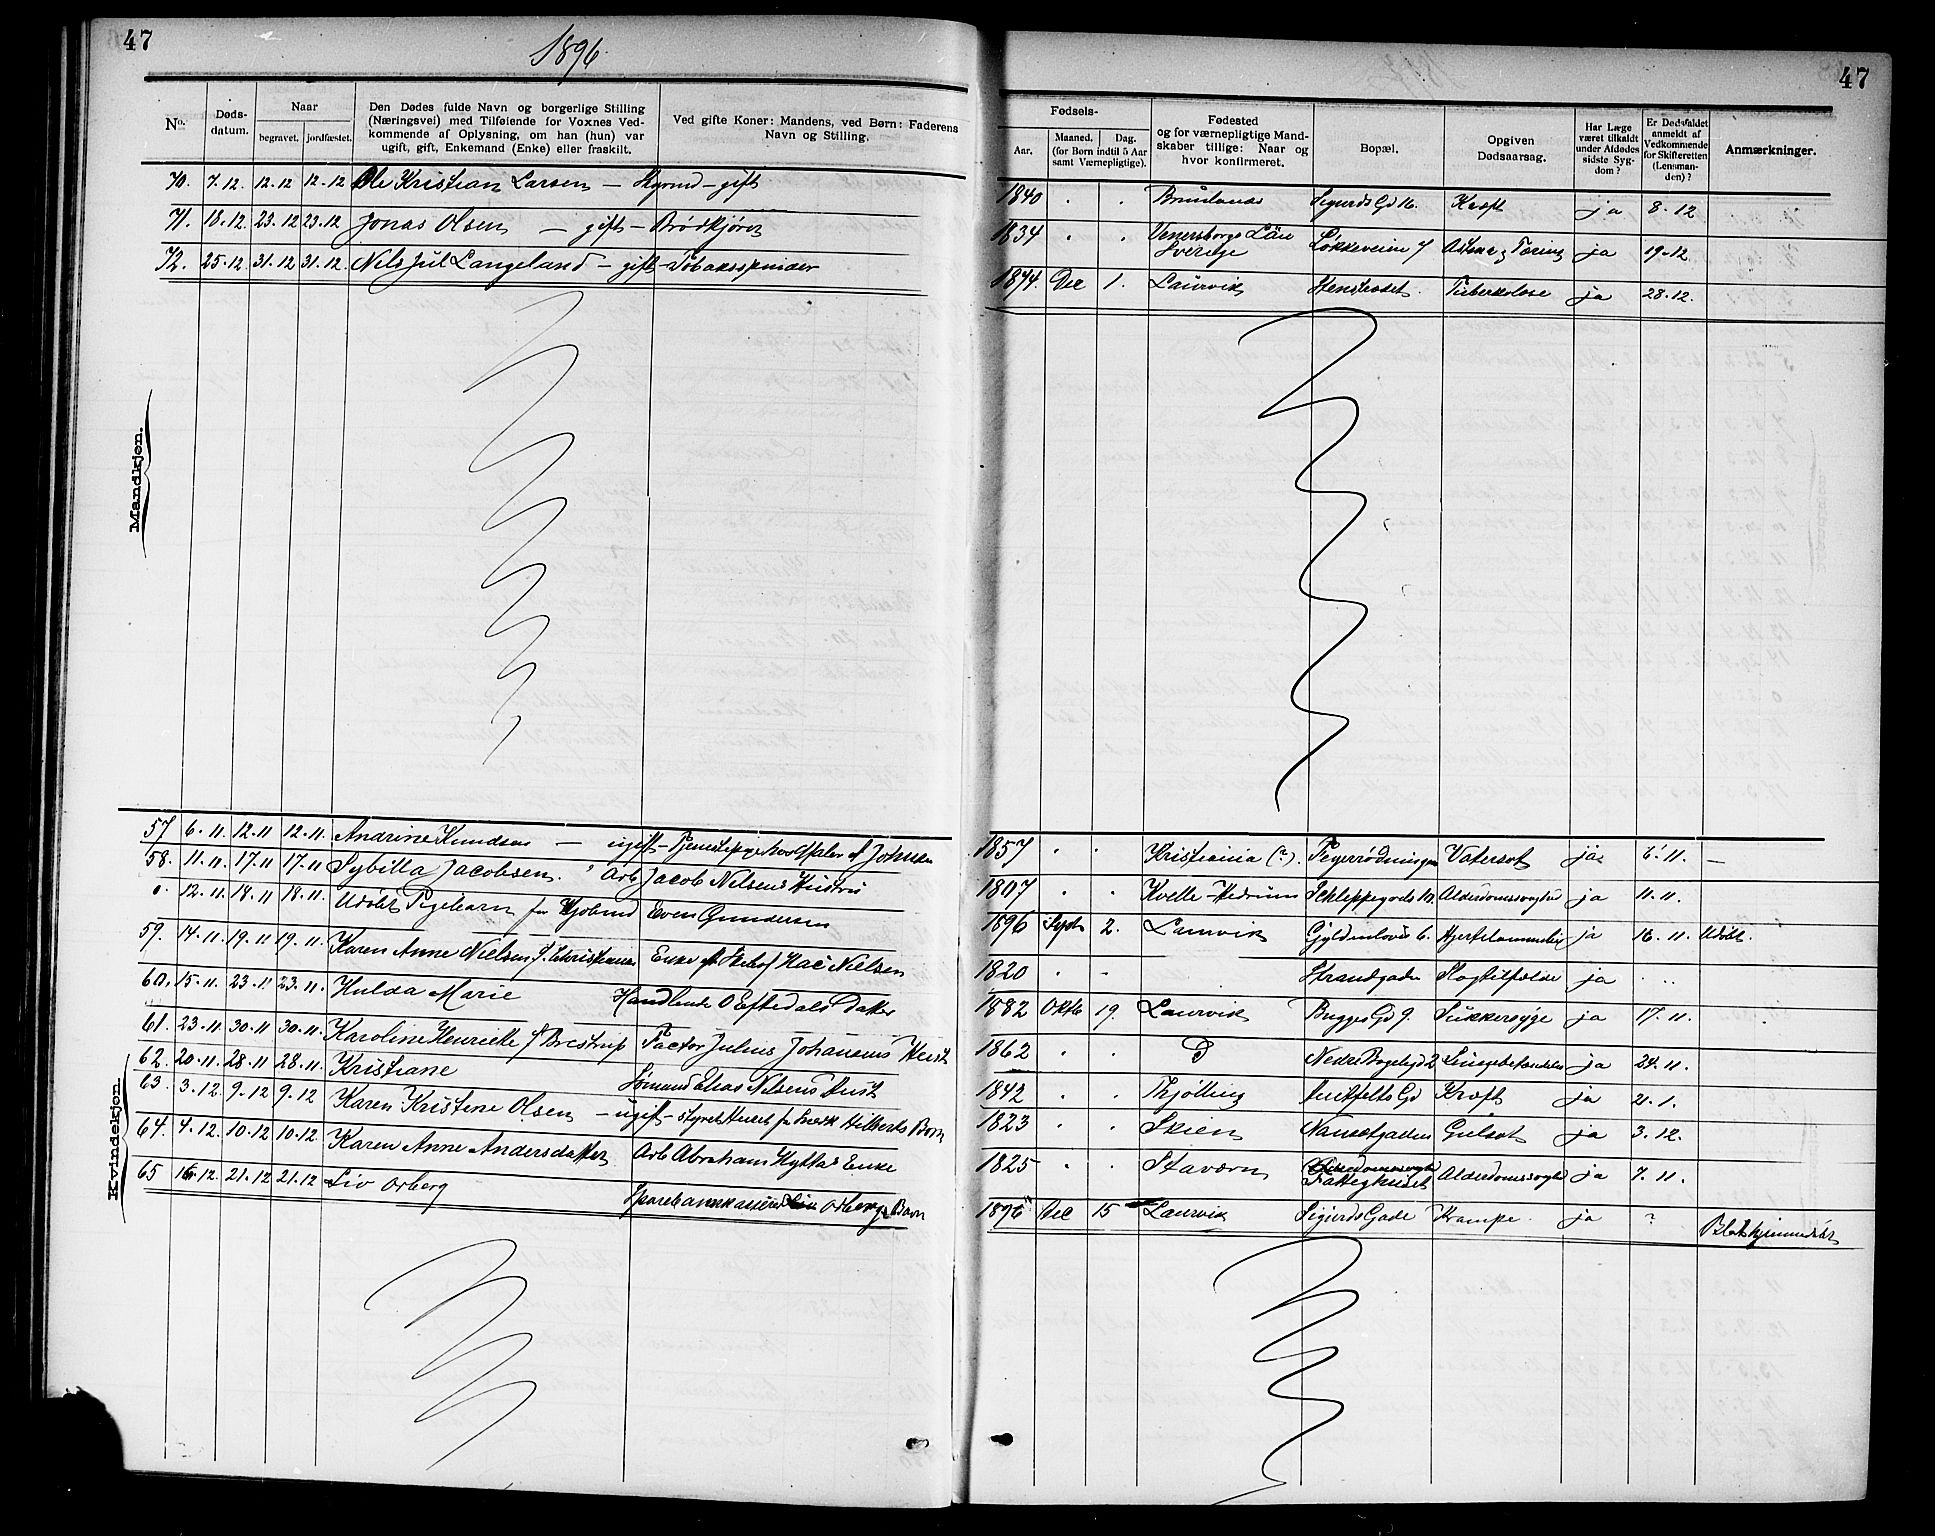 47
1896.
47
No.
Døds-
datum.
Naar
begravet. jordfæstet.
Den Dødes fulde Navn og borgerlige Stilling
(Næringsvei) med Tilføiende for Voxnes Ved-
kommende af Oplysning, om han (hun) var
ugift, gift, Enkemand (Enke) eller fraskilt.
Ved gifte Koner: Mandens, ved Børn: Faderens
Navn og Stilling.
Fødsels-
Aar.
Maaned. Dag.
(for Børn indtil 5 Aar
samt Værnepligtige).
Fødested
og for værnepligtige Mand-
skaber tillige: Naar og
hvor konfirmeret.
Bopæl.
Opgiven
Dødsaarsag.
Har Læge
været tilkaldt
under Afdødes
sidste Syg-
dom?
Er Dødsfaldet
anmeldt af
Vedkommende
for Skifteretten
(Lensman-
den)?
Anmærkninger.
Mandkjøn.
70. 7.12. 12.12 12.12 Ole Kristian Larsen — — gift 1840 . . Brunlanæs Sigurds Gd 16. Kræft ja 8.12
71. 18.12. 23.12 23.12 Jonas Olsen — gift — Brødkjører 1834 . . Venersborgs Län Sverige Løkkeveien 7 ja 19.12
72. 25.12 31.12 31.12. Nils Jul Langeland — gift — Tobaksspinder 1874. Dec 1. Laurvik Tuberkulose ja 28.12.
Kvindekjøn.
57 6.11. 12.11 12.11. Andrine Knudsen — ugift — Tjenestepige hos af Johnsen 1857 . . Kristiania (?). Vatersot ja 6.11. —
58. 11.11. 17.11 17.11 Sybilla Jacobsen. Arb Jacob Nilsens Hustru 1807 . . Kvelle - Hedrum Alderdomssvaghed ja 11.11.
0. 12.11. 18.11 18.11. Udøbt Pigebarn for Even Gundersen 1896 Sept 2. Laurvik Gyldenløves 6. ja 16.11. Udøbt.
59. 14.11. 19.11 19.11. Karen Anne Nielsen f. Christiansen Enke af Nielsen 1820 . . Strandgaden Slagtilfælde ja . ..
60. 15.11. 23.11 23.11. Hulda Marie Handlende O Eftedals Datter 1882 Oktb 19. Laurvik Bugges Gd 9. Sukkersyge ja 17.11.
61. 23.11. 30.11 30.11. Karoline Henriette f. Brestrup Factor Julius Johannes 1862 . . D Nedre Bøgebgd 2 ja 24.11.
62. 20.11. 28.11 28.11. Kristiane Sømand Elias Nilsens Hust 1842 . . Thjølling Kræft ja 21.1.
63. 3.12. 9.12 9.12 Karen Kristine Olsen — ugift — styret Huset for Hilberts Born 1823 . . Skien Nansetgaden Gulsot ja 3.12.
64. 4.12. 10.12 10.12. Karen Anne Andersdatter Arb Abraham Hyttas Enke 1825 . . Stavern Fattighuset Alderdomssvaghed ja 7.11.
65 15.12. 21.12 21.12 Liv Orberg Sparebankkasserer Orbergs Barn 1896 Dec 15 Laurvik Sigurds Gade Krampe. ja ? hjemmedøbt